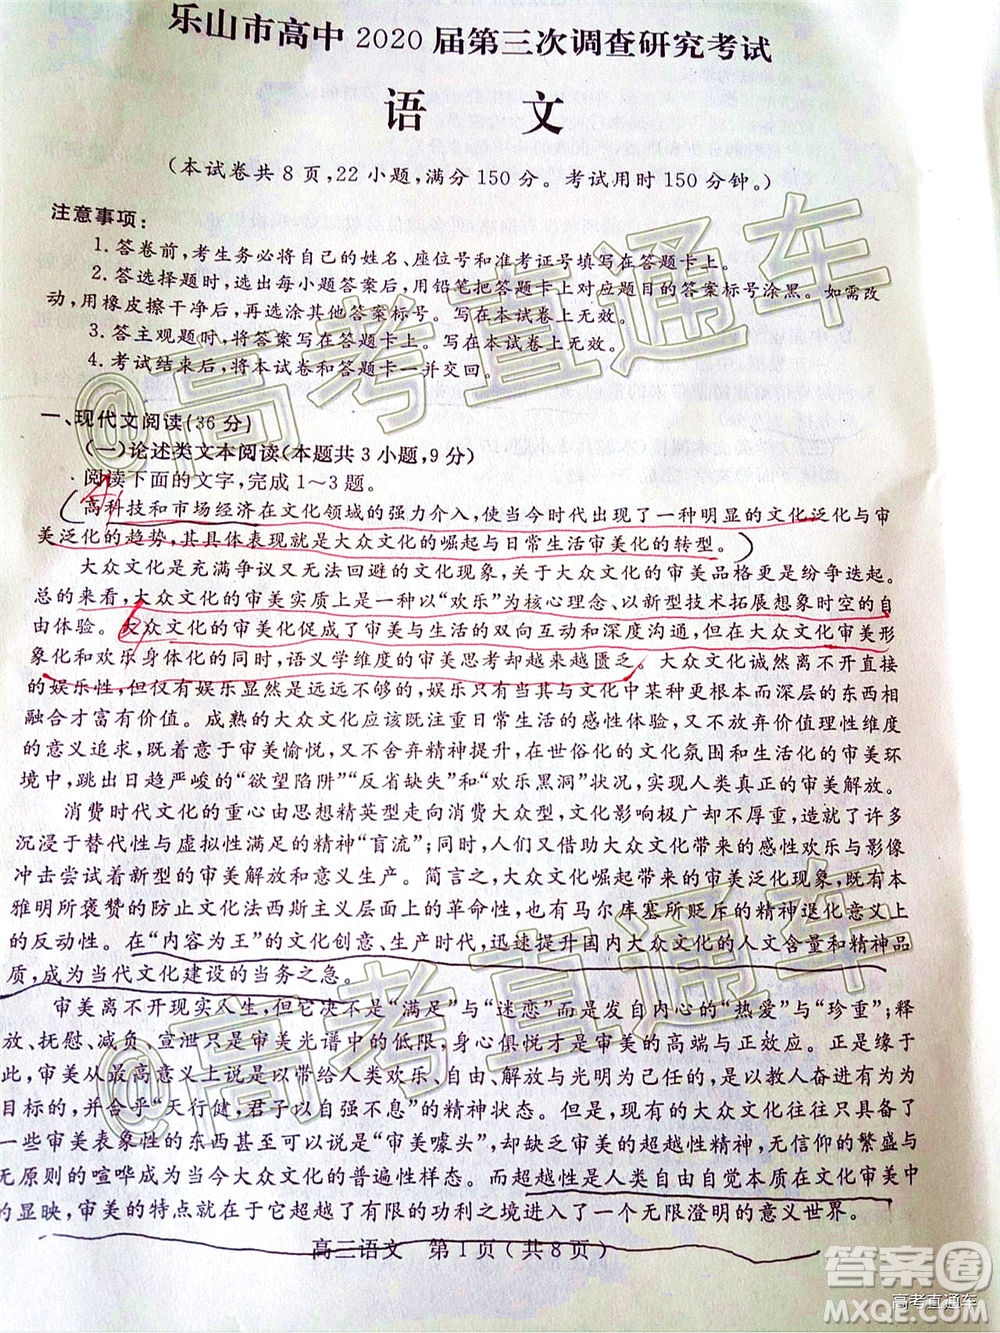 乐山市高中 2020 届第三次调查研究考试
语 文
(本试卷共 8 页,22 小题,满分 150 分。考试用时 150 分钟。)
注意事项:
1. 答卷前,考生务必将自己的姓名、座位号和准考证号填写在答题卡上。
2. 答选择题时,选出每小题答案后,用铅笔把答题卡上对应题目的答案标号涂黑。如需改
动,用橡皮擦干净后,再选涂其他答案标号。写在本试卷上无效。
3. 答主观题时,将答案写在答题卡上。写在本试卷上无效。
4. 考试结束后,将本试卷和答题卡一并交回。
一、现代文阅读(36 分)
(一)论述类文本阅读(本题共 3 小题,9 分)
阅读下面的文字,完成 1～3 题。
高科技和市场经济在文化领域的强力介入,使当今时代出现了一种明显的文化泛化与审
美泛化的趋势,其具体表现就是大众文化的崛起与日常生活审美化的转型。
大众文化是充满争议又无法回避的文化现象,关于大众文化的审美品格更是纷争迭起。
总的来看,大众文化的审美实质上是一种以“欢乐”为核心理念、以新型技术拓展想象时空的自
由体验。大众文化的审美化促成了审美与生活的双向互动和深度沟通,但在大众文化审美形
象化和欢乐身体化的同时,语义学维度的审美思考却越来越匮乏。大众文化诚然离不开直接
的娱乐性,但仅有娱乐显然是远远不够的,娱乐只有当其与文化中某种更根本而深层的东西相
融合才富有价值。成熟的大众文化应该既注重日常生活的感性体验,又不放弃价值理性维度
的意义追求,既葆有审美愉悦,又不舍弃精神提升,在世俗化的文化氛围和生活化的审美环
境中,跳出日趋严峻的“欲望陷阱”“反省缺失”和“欢乐黑洞”状况,实现人类真正的审美解放。
消费时代文化的重心由思想精英型走向消费大众型,文化影响极广却不厚重,造就了许多
沉浸于替代性与虚拟性满足的精神“盲流”;同时,人们又借助大众文化带来的感性欢乐与影像
冲击尝试着新型的审美解放和意义生产。简言之,大众文化崛起带来的审美泛化现象,既有本
雅明所褒赞的防止文化法西斯主义层面上的革命性,也有马尔库塞所贬斥的精神退化意义上
的反动性。在“内容为王”的文化创意、生产时代,迅速提升国内大众文化的人文含量和精神品
质,成为当代文化建设的当务之急。
审美离不开现实人生,但它决不是“满足”与“迷恋”而是发自内心的“热爱”与“珍重”;释
放、抚慰、减负、宣泄只是审美光谱中的低限,身心俱悦才应当是审美的高端与正效应。正是缘
此,审美从最高意义上说是以给人类欢乐、自由、解放与光明为己任的,是以教人奋进有为为
目标的,并合乎“天行健,君子以自强不息”的精神状态。但是,现有的大众文化往往只具备了
一些审美表象性的东西甚至可以说是“审美噱头”,却缺乏审美的超越性精神,无信仰的繁盛与
无原则的喧哗成为当今大众文化的普遍性样态。而超越性是人类自由自觉本质在文化审美中
的显映,审美的特点就在于它超越了有限的功利之境进入了一个无限澄明的意义世界。
高三语文 第 1 页(共 8 页)
@高考直通车
@高考直通车
答案圈
MXQE.COM
高考直通车